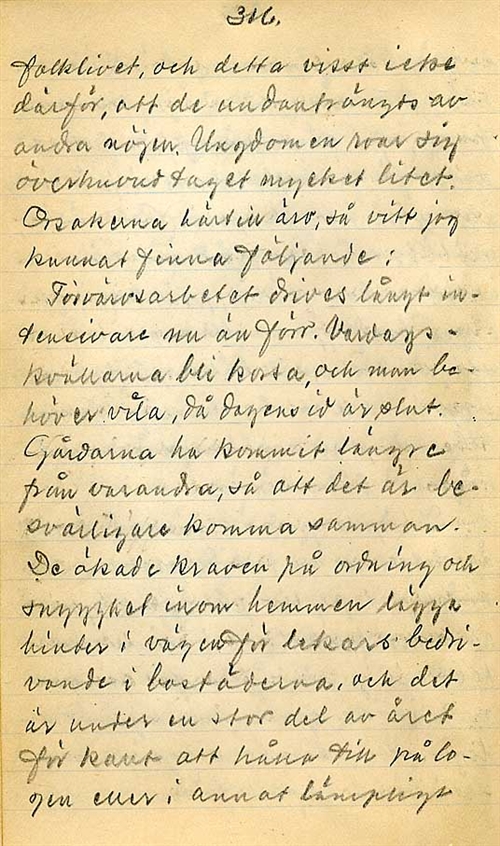 316.
folklivet, och detta visst icke
därför, att de undanträngts av
andra nöjen. Ungdomen roar sig
överhuvud taget mycket litet.
Orsakerna härtill äro, så vitt jag
kunnat finna följande:
Förvärvsarbetet drives långt in-
tensivare nu än förr. Vardags-
kvällarna bli korta, och man be-
höver vila, då dagens id är slut.
Gårdarna ha kommit längre
från varandra, så att det är be-
svärligare komma samman.
De ökade kraven på ordning och
snygghet inom hemmen lägga
hinder i vägen för lekars bedri-
vande i bostäderna, och det
är under en stor del av året
för kallt att hålla till på lo-
gen eller i annat lämpligt